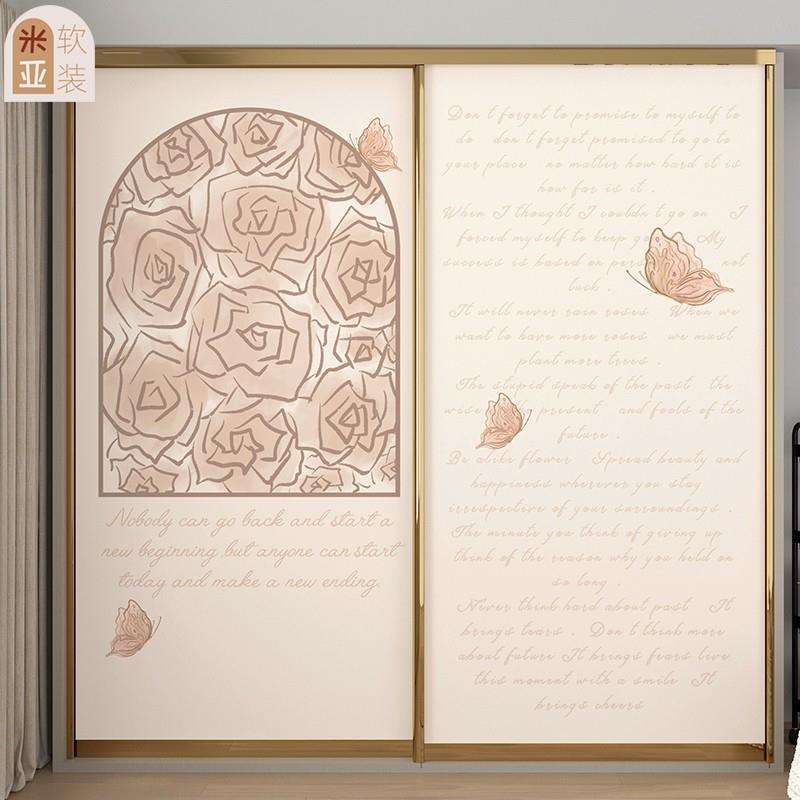 米 软
亚 装
Nobody can go back and start a
new beginning but anyone can start
today and make a new ending.
Don t forget to promise to myself to
do don t forget promised to go to
your place no matter how hard it is
how far is it .
When I thought I couldn t go on I
forced myself to keep go My
success is based on pers not
luck .
It will never rain roses When we
want to have more roses we must
plant more trees .
The stupid speak of the past the
wise present and fools of the
future .
Be alike flower Spread beauty and
happiness wherever you stay
irrespective of your surroundings .
The minute you think of giving up
think of the reason why you held on
so long .
Never think hard about past It
brings tears . Don t think more
about future It brings fears live
this moment with a smile It
brings cheers